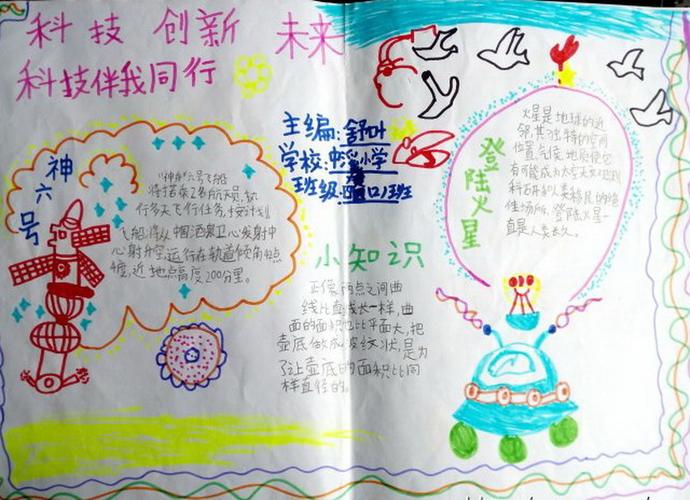 科技 创新 未来
科技伴我同行
主编:舒叶
学校:小学
班级:四(1)班
神
六
号
"神舟"六号飞船
将搭乘2名航天员,执
行多天飞行任务,按计划
飞船将从中国酒泉卫心发射中
心发射升空,运行在轨道倾角
度,近地点高度200公里。
小知识
正像两点之间曲
线比直线长一样,曲
面的面积也比平面大,把
壶底做成波纹状,是为
了让壶底的面积比同
样直径的。
登
陆
火
星
火星是地球的近
邻,其独特的空间
位置,气候,地质使它
有可能成为太空
人类移民的
性场所,登陆火星一
直是人类